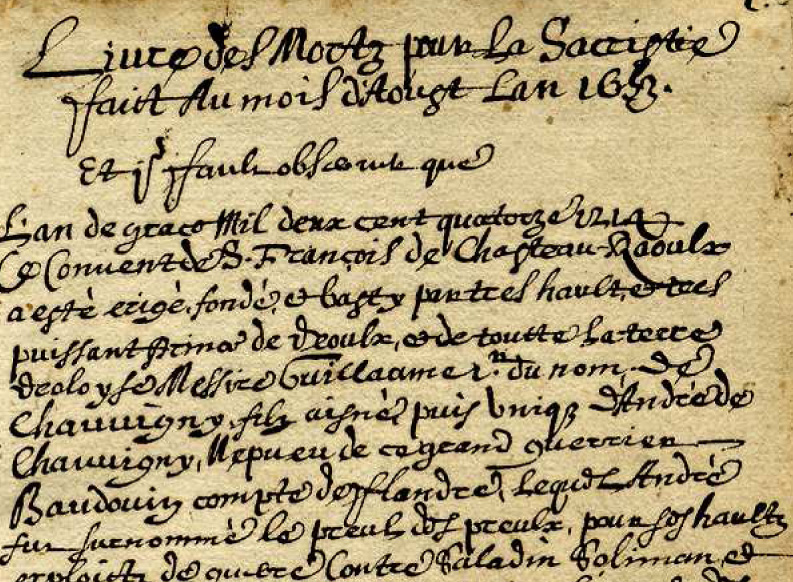 Livre des Mortz pour La Sacristie
ffaict Au mois d'Aougst Lan 1653.
Et jl ffault observer que
Lan de grace Mil deux cent quatorze 1214
Ce Convent de S. François de Chasteau-Raoulx
a esté erigé, fondé, et basty par tres hault, et tres
puissant Prince de Deoulx, et de toutte La terre
deoloyse Messire Guillaume 1.er du nom, de
Chauvigny, filz aisné, puis Unique d'André de
Chauvigny, Nepveu de ce grand guerrier
Baudouin compte de fflandre, Lequel André
fut surnommé le preulx des preulx, pour ses haultz
exploictz de guerre Contre Saladin Soliman, et